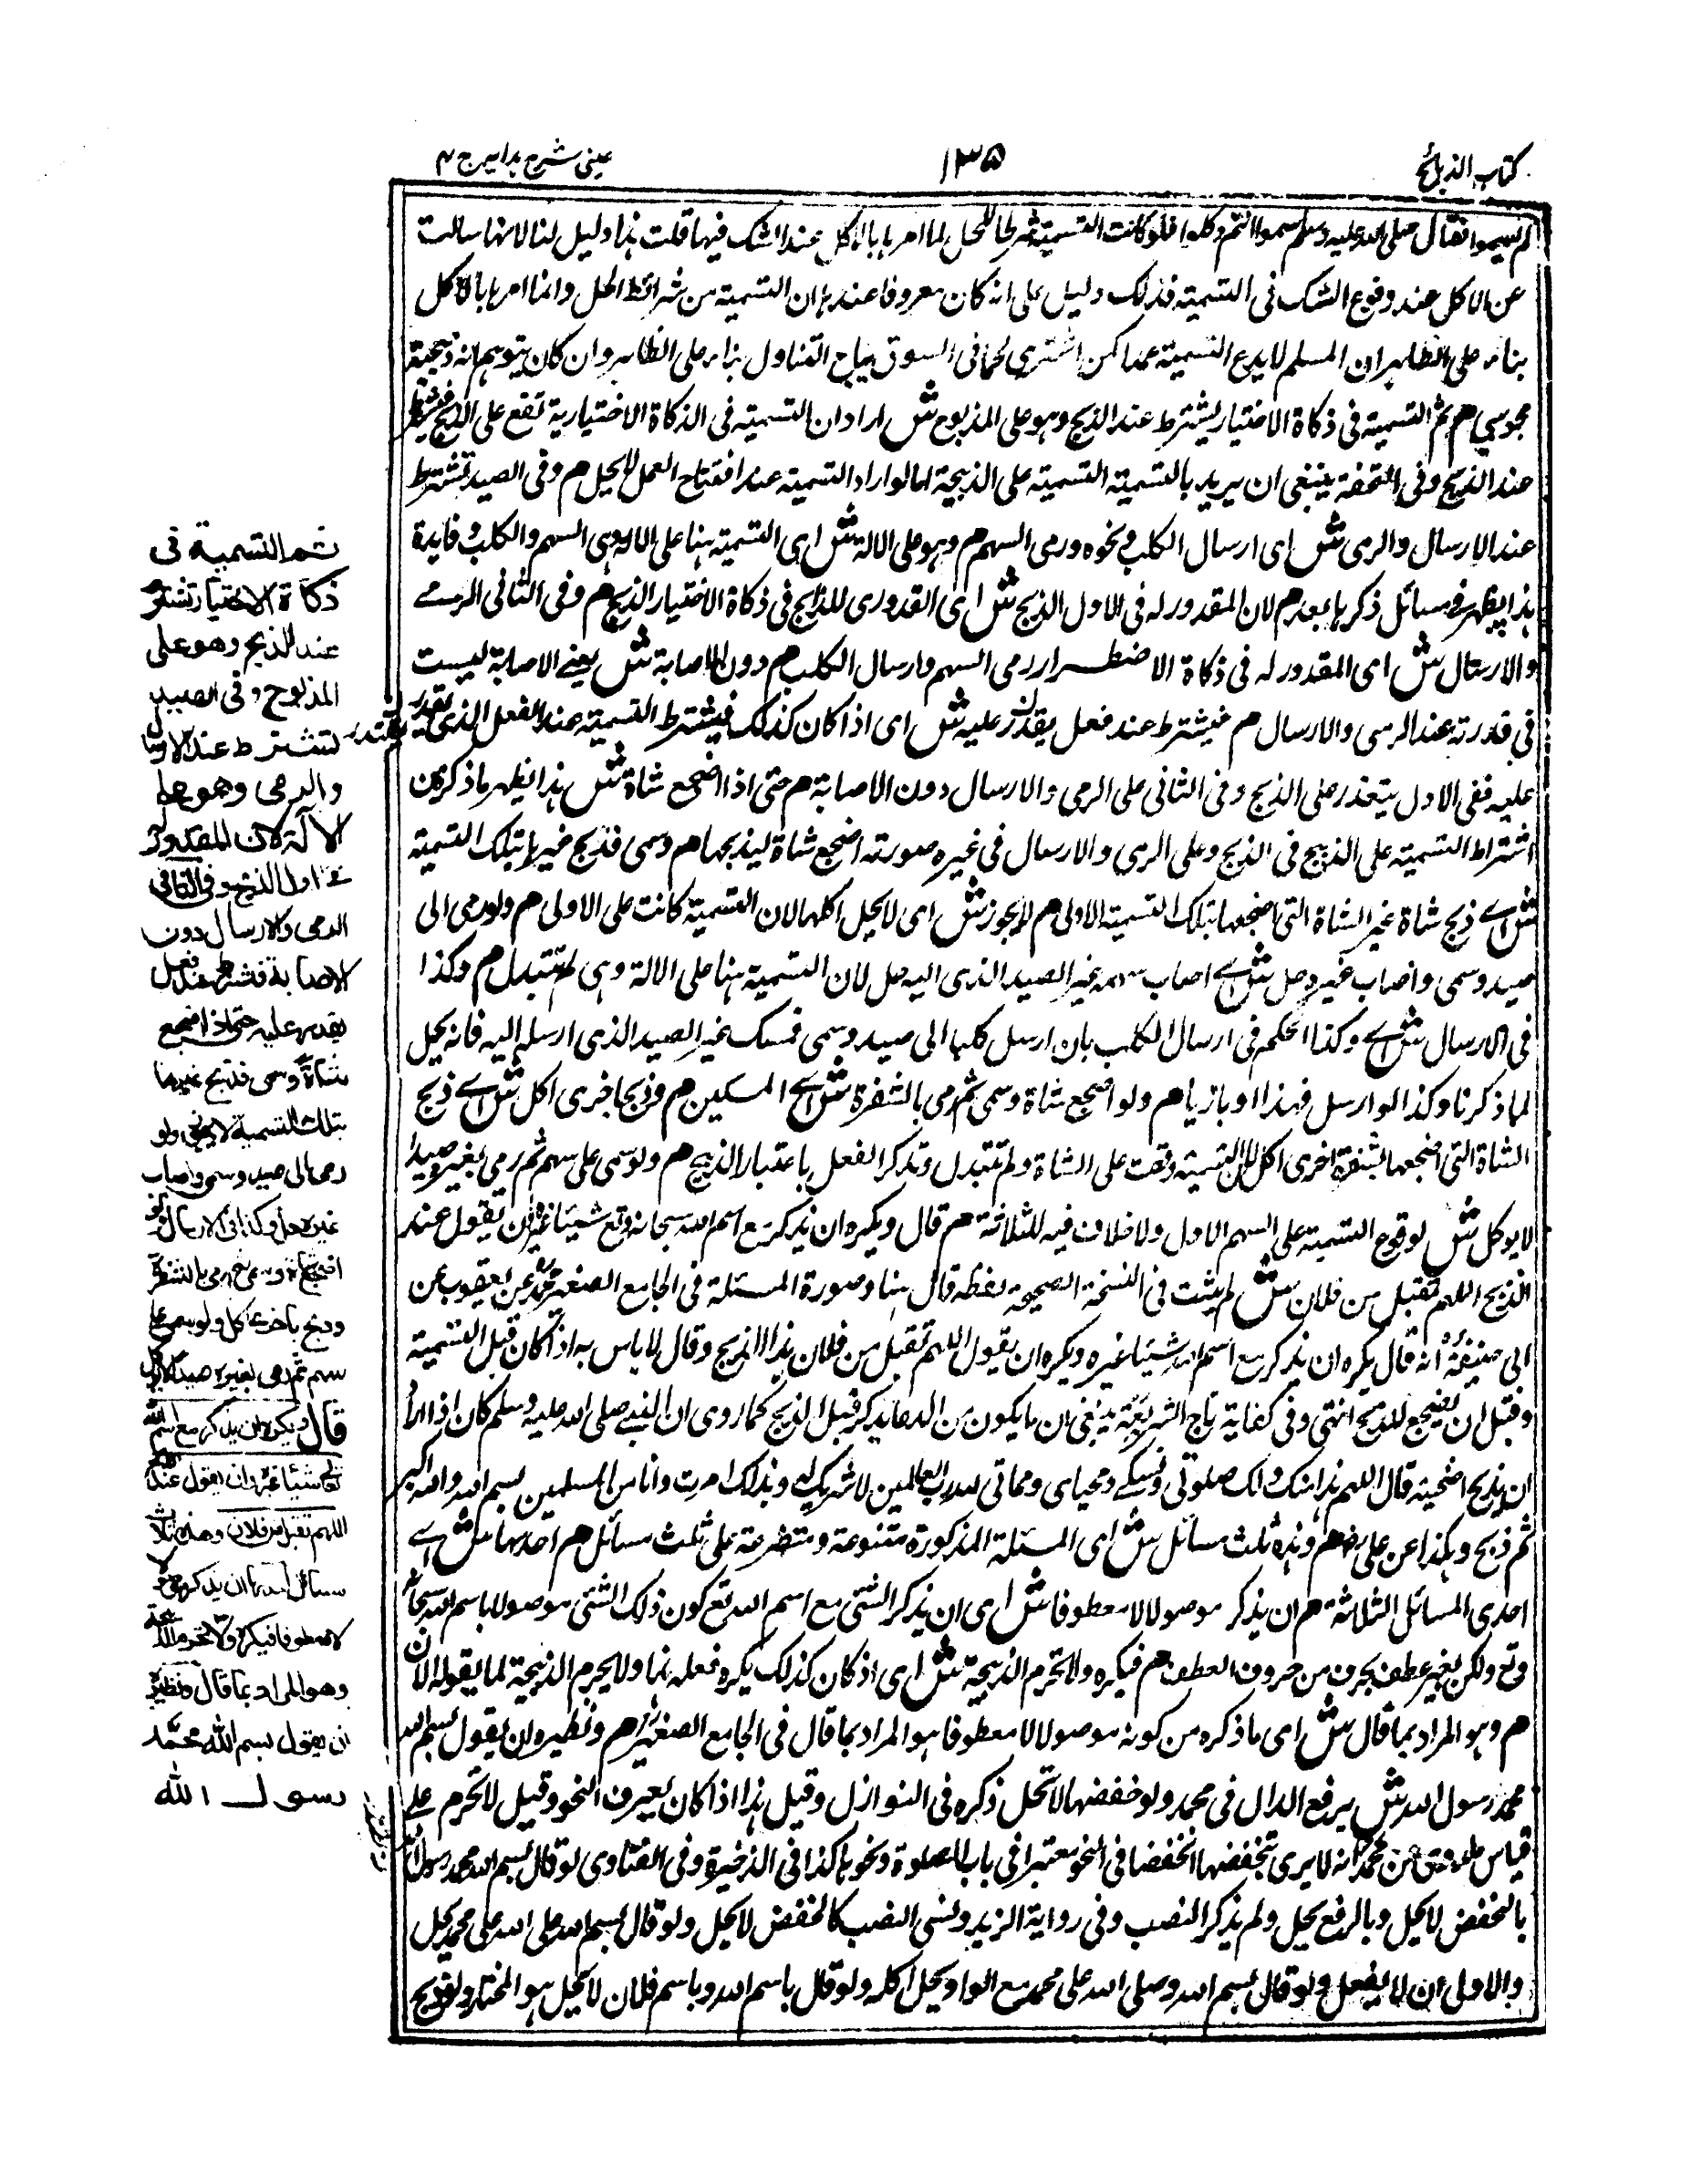 كتاب الذبائح
١٣٥
عينى شرح هدايه ج ٤
لم يسموا فقال صلى الله عليه وسلم سموا انتم وكلوا فلو كانت التسمية شرطا للحل لما امرها بالاكل عند الشك فيها قلت هذا دليل لنا لانها سالت
عن الاكل عند وقوع الشك فى التسمية فذلك دليل على انه كان معروفا عندها ان التسمية من شرائط الحل وانما امرها بالاكل
بناء على الظاهر ان المسلم لا يدع التسمية عمدا كمن اشترى لحما فى السوق يباح التناول بناء على الظاهر وان كان يتوهم انه ذبيحة
مجوسي م ثم التسمية فى ذكاة الاختيار يشترط عند الذبح وهو على المذبوح ش اراد ان التسمية فى الذكاة الاختيارية تقع على الذبح فيشترط
عند الذبح وفى التحفة ينبغى ان يريد بالتسمية التسمية على الذبيحة اما لو اراد التسمية عند افتتاح العمل لا يحل م وفى الصيد تشترط
عند الارسال والرمى ش اى ارسال الكلب ونحوه ورمى السهم م وهو على الالة ش اى التسمية هنا على الالة وهى السهم والكلب وفايدة
هذا يظهر فى مسائل ذكرها بعد م لان المقدور له فى الاول الذبح ش اى القدورى للذابح فى ذكاة الاختيار الذبح م وفى الثانى الرمى
والارسال ش اى المقدور له فى ذكاة الاضطرار رمى السهم وارسال الكلب م دون الاصابة ش يعنى الاصابة ليست
فى قدرته عند الرمى والارسال م فيشترط عند فعل يقدر عليه ش اى اذا كان كذلك فيشترط التسمية عند الفعل الذى يقدر
عليه ففى الاول يتعذر على الذبح وفى الثانى على الرمى والارسال دون الاصابة م حتى اذا اضجع شاة ش هذا يظهر ما ذكر من
اشتراط التسمية على الذبح فى الذبح وعلى الرمى والارسال فى غيره صورته اضجع شاة ليذبحها م وسمى فذبح غيرها بتلك التسمية
ش اى ذبح شاة غير الشاة التى اضجعها بتلك التسمية الاولى م لا يجوز ش اى لا يحل اكلها لان التسمية كانت على الاولى م ولو رمى الى
صيد وسمى واصاب غيره حل ش اى اصاب سهمه غير الصيد الذى اليه حل لان التسمية هنا على الالة وهى لم تتبدل م وكذا
فى الارسال ش اى وكذا الحكم فى ارسال الكلب بان ارسل كلبا الى صيد وسمى فمسك غير الصيد الذى ارسله اليه فانه يحل
لما ذكرنا وكذا لو ارسل فهدا او بازيا م ولو اضجع شاة وسمى ثم رمى بالشفرة ش اى السكين م وذبح باخرى اكل ش اى ذبح
الشاة التى اضجعها بشفرة اخرى اكل لان التسمية وقعت على الشاة ولم تتبدل وتذكر الفعل باعتبار الذبح م ولو سمى على سهم ثم رمى بغيره صيدا
لا يوكل ش لوقوع التسمية على السهم الاول ولا خلاف فيه للثلاثة م قال ويكره ان يذكر مع اسم الله سبحانه وتع شيئا غيره وان يقول عند
الذبح اللهم تقبل من فلان ش لم يثبت فى النسخة الصحيحة لفظه قال هنا وصورة المسئلة فى الجامع الصغير محمد عن يعقوب عن
ابى حنيفة انه قال يكره ان يذكر مع اسم الله شيئا غيره ويكره ان يقول اللهم تقبل من فلان هذا الذبح وقال لا باس به اذا كان قبل التسمية
وقبل ان يضجع للذبح انتهى وفى كفاية تاج الشريعة ينبغى ان ما يكون من الدعا يذكر قبل الذبح كما روى ان النبى صلى الله عليه وسلم كان اذا اراد
ان يذبح اضحيته قال اللهم هذا منك ولك صلوتى ونسكى ومحياى ومماتى لله رب العالمين لا شريك له وبذلك امرت وانا من المسلمين بسم الله والله اكبر
ثم ذبح وهكذا عن على رض م وهذه ثلث مسائل ش اى المسئلة المذكورة متنوعة ومتضرعة على ثلث مسائل م احدها ش اى
احدى المسائل الثلاثة م ان يذكر موصولا لا معطوفا ش اى ان يذكر الشئ مع اسم الله تع كون ذلك الشئ موصولا باسم الله سبحانه
وتع ولكن بغير عطف بحرف من حروف العطف م فيكره ولا تحرم الذبيحة ش اى اذ كان كذلك يكره فعله هذا ولا يحرم الذبيحة لما يقوله الان
م وهو المراد بما قال ش اى ما ذكره من كونه موصولا لا معطوفا هو المراد بما قال فى الجامع الصغير م ونظيره ان يقول بسم الله
محمد رسول الله ش برفع الدال فى محمد ولو خفضها لا تحل ذكره فى النوازل وقيل هذا اذا كان يعرف النحو وقيل لا تحرم على
قياس ما روى عن محمد انه لا يرى تخفضها الخفضا فى النحو معتبرا فى باب الصلوة ونحوها كذا فى الذخيرة وفى الفتاوى لو قال بسم الله محمد رسول الله
بالخفض لا يحل وبالرفع يحل ولم يذكر النصب وفى رواية الزيدونسى النصب كالخفض لا يحل ولو قال بسم الله صلى الله على محمد يحل
والاولى ان لا يفعل ولو قال بسم الله وصلى الله على محمد مع الواو يحل اكله ولو قال باسم الله وباسم فلان لا يحل هو المختار ولو ذبح
ثم التسمية فى
ذكاة الاختيار تشترط
عند الذبح وهو على
المذبوح وفى الصيد
تشترط عند الارسال
والرمى وهو على
الآلة لان المقدور
فى الاول الذبح وفى الثانى
الرمى والارسال دون
الاصابة فتشترط عند فعل
يقدر عليه حتى اذا اضجع
شاة وسمى فذبح غيرها
بتلك التسمية لا يجوز ولو
رمى الى صيد وسمى واصاب
غيره حل وكذا فى الارسال ولو
اضجع شاة وسمى ثم رمى بالشفرة
وذبح باخرى اكل ولو سمى على
سهم ثم رمى بغيره صيدا لا يؤكل
قال ويكره ان يذكر مع اسم الله
تعالى شيئا غيره وان يقول عند الذبح
اللهم تقبل من فلان وهذه ثلاث
مسائل احدها ان يذكر موصولا
لا معطوفا فيكره ولا تحرم الذبيحة
وهو المراد بما قال ونظيره
ان يقول بسم الله محمد
رسول الله